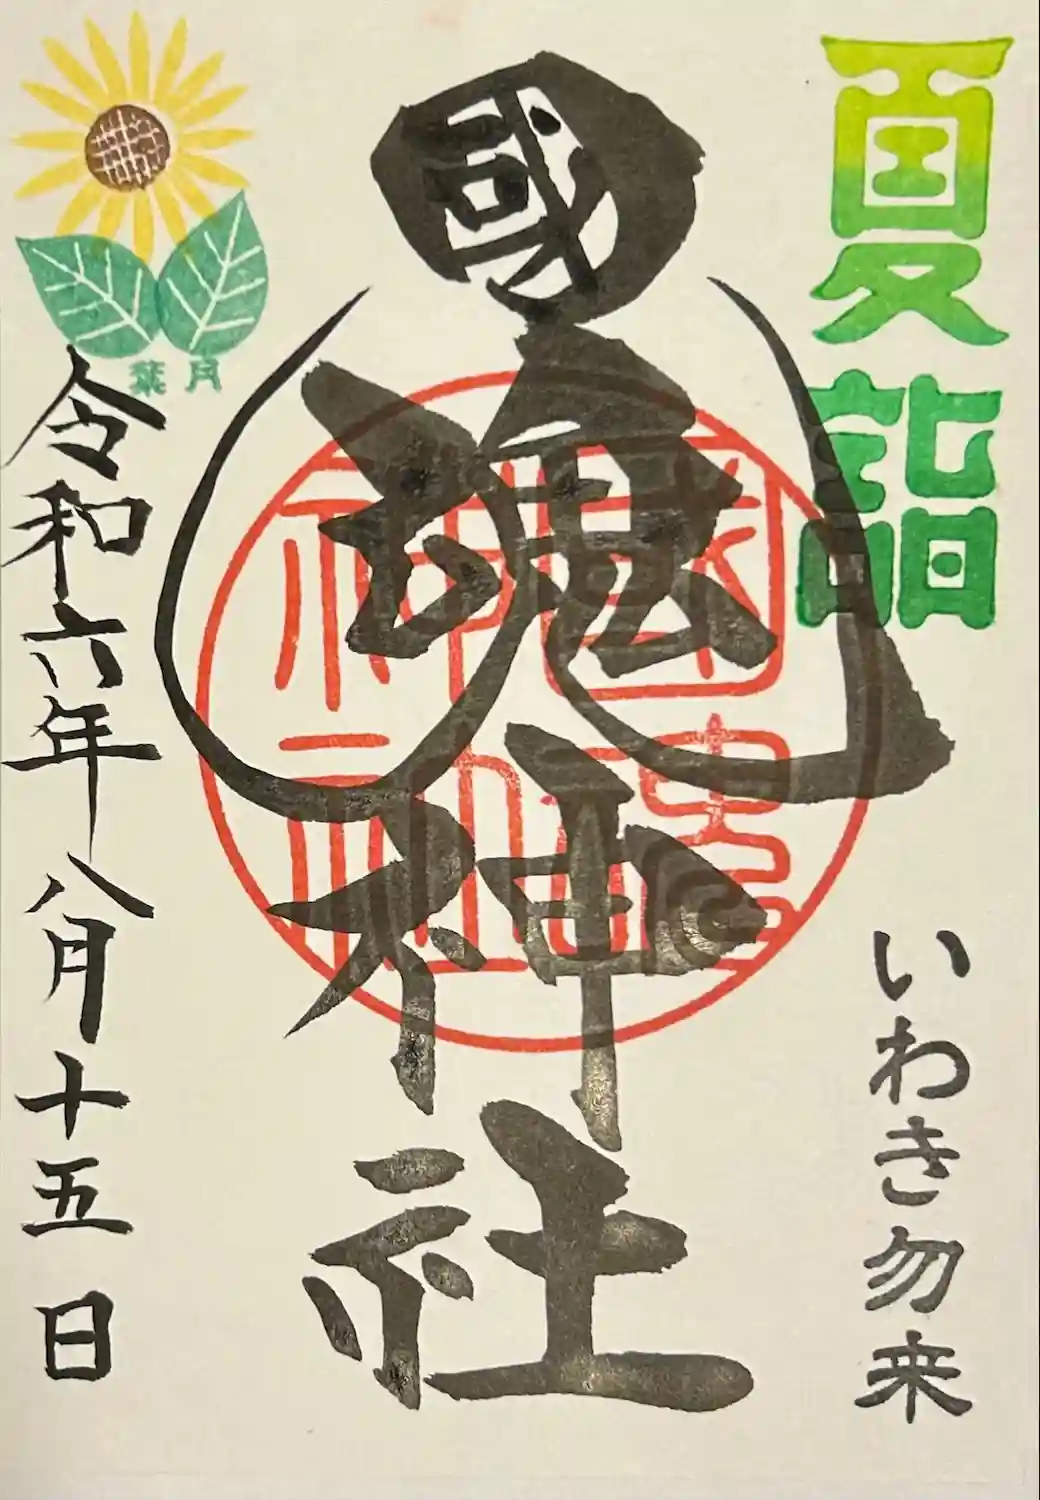 夏詣
いわき勿来
國魂神社
国魂神社
葉月
令和六年八月十五日